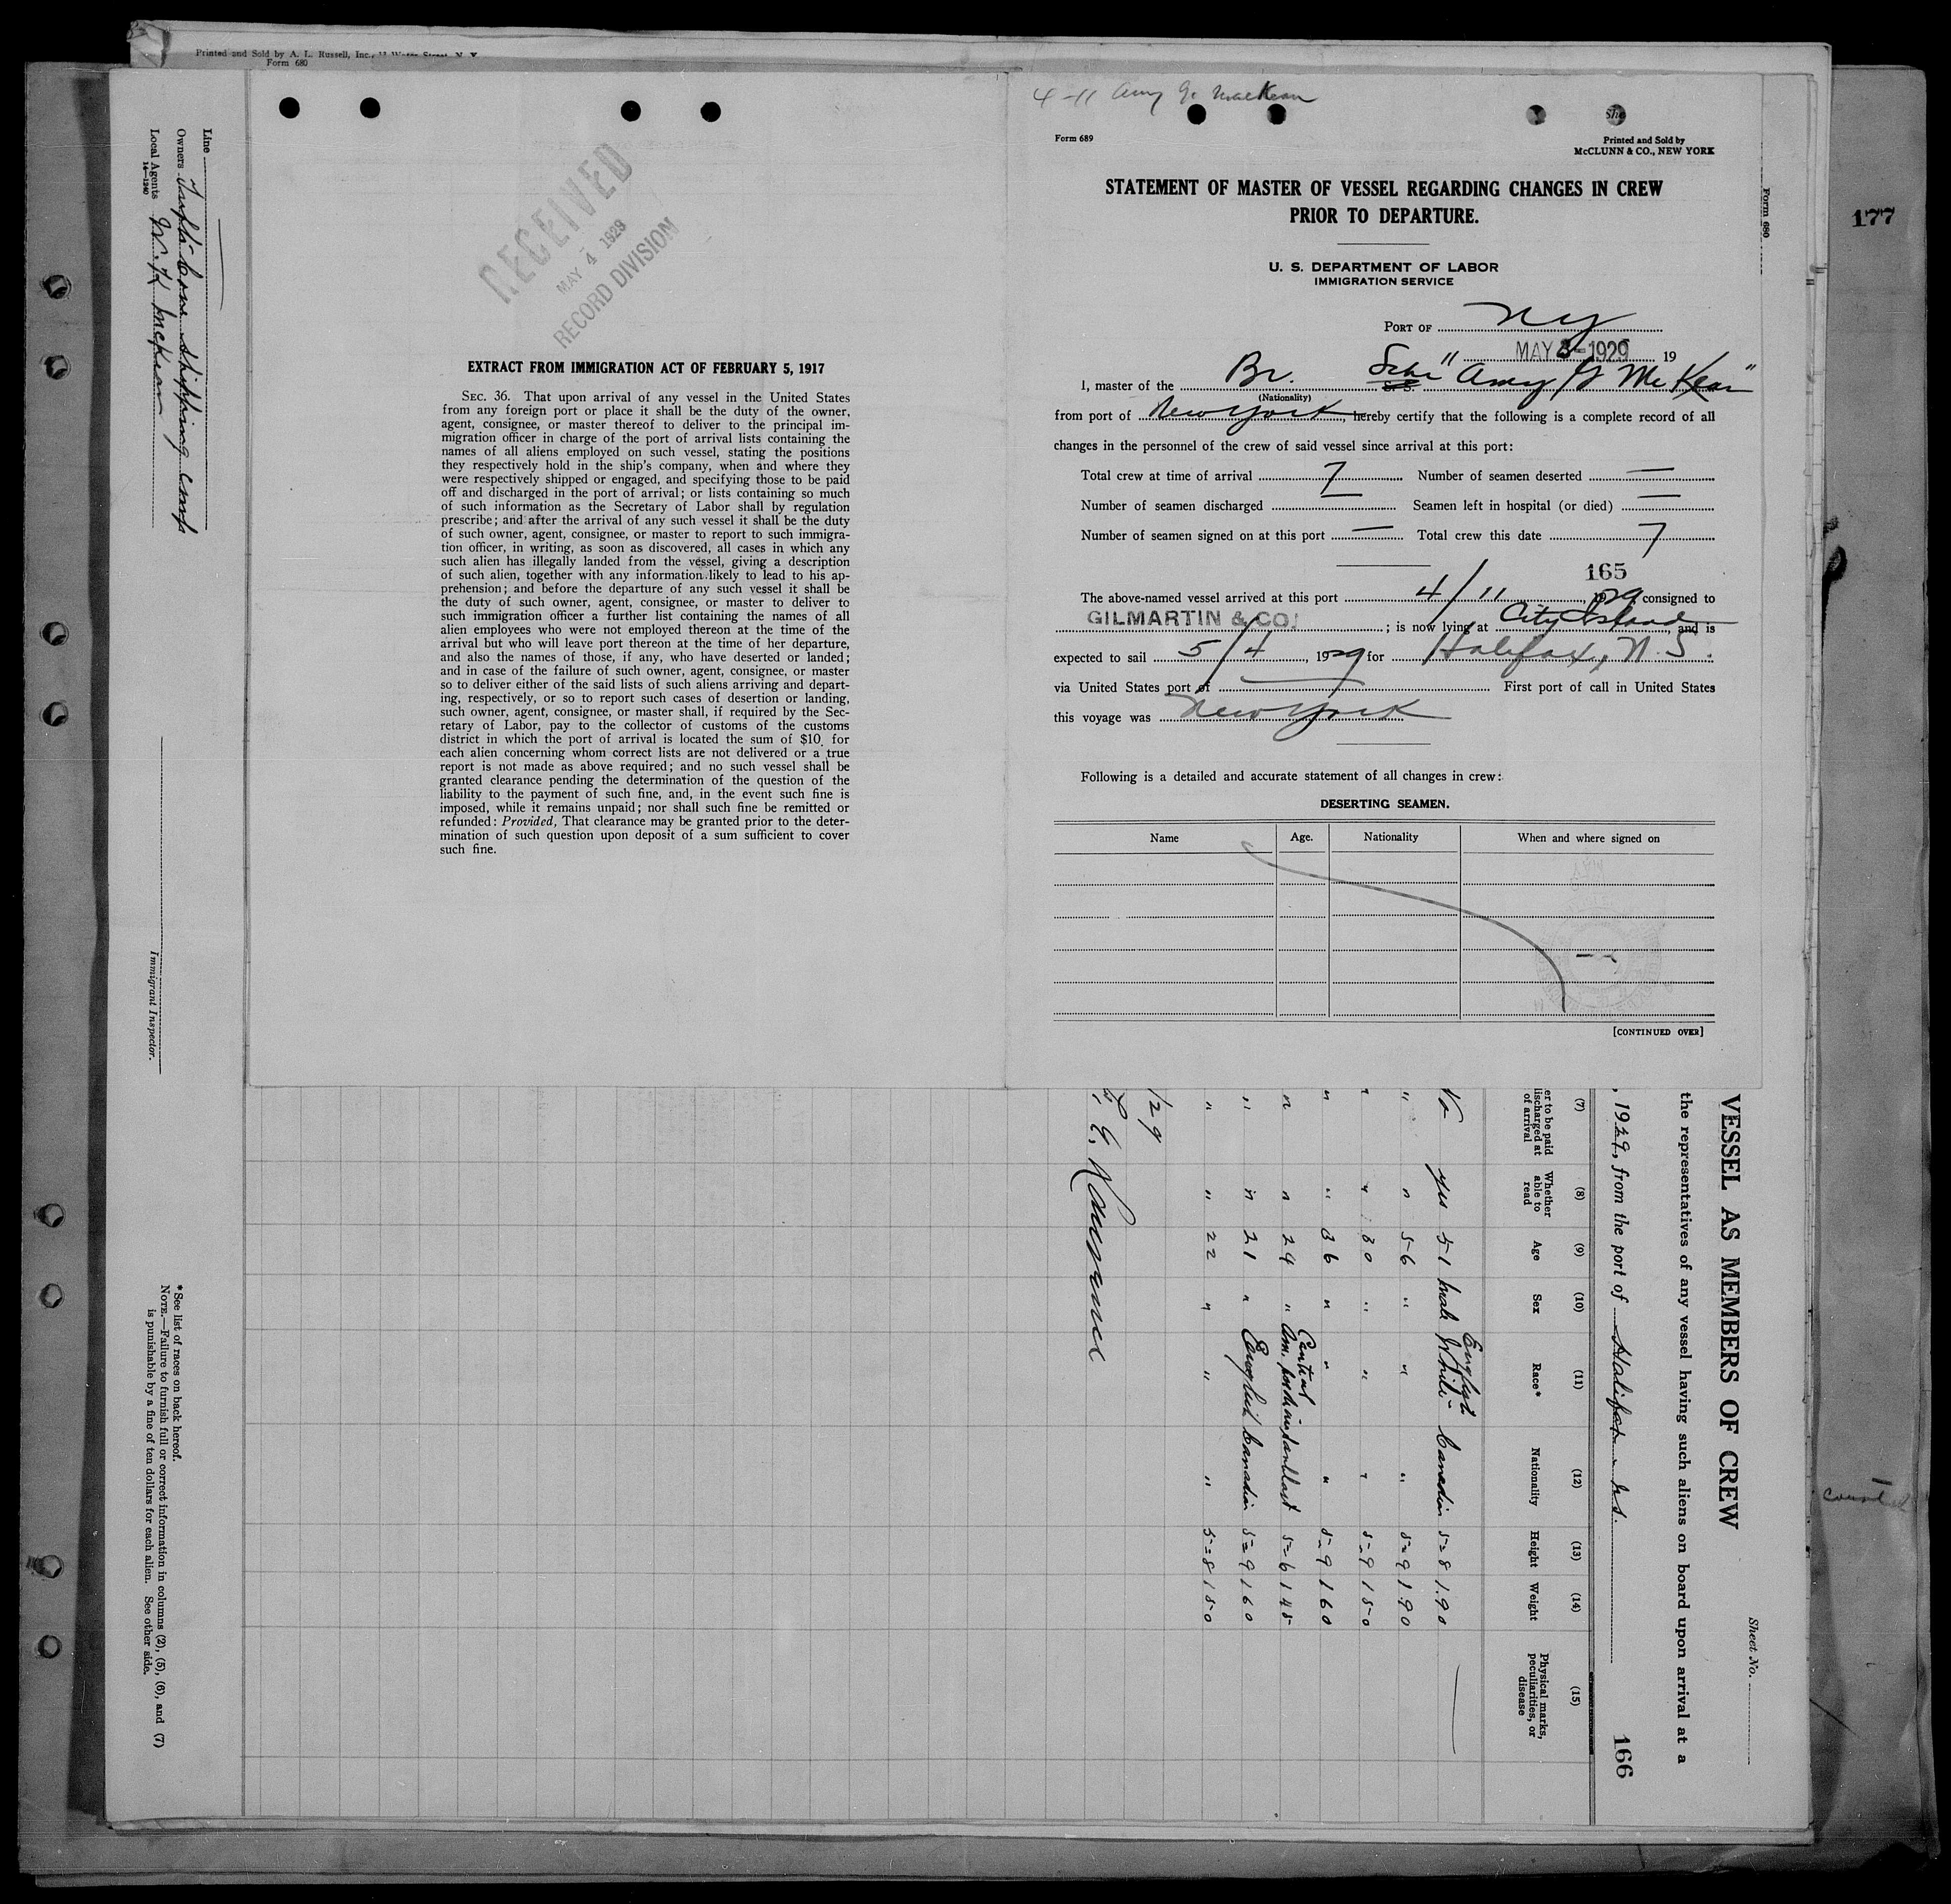 Printed and Sold by A. L. Russell, Inc.,
Form 680
177
4-11 Amy G. MacKean
Form 689
Printed and Sold by
McCLUNN & CO., NEW YORK
STATEMENT OF MASTER OF VESSEL REGARDING CHANGES IN CREW
PRIOR TO DEPARTURE.
U. S. DEPARTMENT OF LABOR
IMMIGRATION SERVICE
PORT OF NY
MAY 3-1929 19
I, master of the Br. Schr "Amy G McKean"
(Nationality)
from port of New York, hereby certify that the following is a complete record of all
changes in the personnel of the crew of said vessel since arrival at this port:
Total crew at time of arrival 7 Number of seamen deserted —
Number of seamen discharged — Seamen left in hospital (or died) —
Number of seamen signed on at this port — Total crew this date 7
165
The above-named vessel arrived at this port 4/11, 1929 consigned to
GILMARTIN & CO. ; is now lying at City Island and is
expected to sail 5/4, 1929 for Halifax, N.S.
via United States port of — First port of call in United States
this voyage was New York
Following is a detailed and accurate statement of all changes in crew:
DESERTING SEAMEN.
Name Age. Nationality When and where signed on
[CONTINUED OVER]
Form 680
RECEIVED
MAY 4 1929
RECORD DIVISION
EXTRACT FROM IMMIGRATION ACT OF FEBRUARY 5, 1917
SEC. 36. That upon arrival of any vessel in the United States
from any foreign port or place it shall be the duty of the owner,
agent, consignee, or master thereof to deliver to the principal im-
migration officer in charge of the port of arrival lists containing the
names of all aliens employed on such vessel, stating the positions
they respectively hold in the ship's company, when and where they
were respectively shipped or engaged, and specifying those to be paid
off and discharged in the port of arrival; or lists containing so much
of such information as the Secretary of Labor shall by regulation
prescribe; and after the arrival of any such vessel it shall be the duty
of such owner, agent, consignee, or master to report to such immigra-
tion officer, in writing, as soon as discovered, all cases in which any
such alien has illegally landed from the vessel, giving a description
of such alien, together with any information likely to lead to his ap-
prehension; and before the departure of any such vessel it shall be
the duty of such owner, agent, consignee, or master to deliver to
such immigration officer a further list containing the names of all
alien employees who were not employed thereon at the time of the
arrival but who will leave port thereon at the time of her departure,
and also the names of those, if any, who have deserted or landed;
and in case of the failure of such owner, agent, consignee, or master
so to deliver either of the said lists of such aliens arriving and depart-
ing, respectively, or so to report such cases of desertion or landing,
such owner, agent, consignee, or master shall, if required by the Sec-
retary of Labor, pay to the collector of customs of the customs
district in which the port of arrival is located the sum of $10 for
each alien concerning whom correct lists are not delivered or a true
report is not made as above required; and no such vessel shall be
granted clearance pending the determination of the question of the
liability to the payment of such fine, and, in the event such fine is
imposed, while it remains unpaid; nor shall such fine be remitted or
refunded: Provided, That clearance may be granted prior to the deter-
mination of such question upon deposit of a sum sufficient to cover
such fine.
Sheet No.
VESSEL AS MEMBERS OF CREW
the representatives of any vessel having such aliens on board upon arrival at a
, 1929, from the port of Halifax N.S.
166
(7) (8) (9) (10) (11) (12) (13) (14) (15)
er to be paid
discharged at
of arrival
Whether
able to
read
Age
Sex
Race*
Nationality
Height
Weight
Physical marks,
peculiarities, or
disease
English
No yes 51 male White Canadian 5=8 190 —
" " 56 " " " 5=9 190
" " 30 " " " 5-9 150
" " 36 " " " 5-9 160
Central
" " 24 " Am. 5=6 145
" " 21 " English Canadian 5=9 160
" " 22 " " " 5=8 150
/29
Line
Owners Shipping
Local Agents
14—1240
Immigrant Inspector.
*See list of races on back hereof.
NOTE.—Failure to furnish full or correct information in columns (2), (5), (6), and (7)
is punishable by a fine of ten dollars for each alien. See other side.